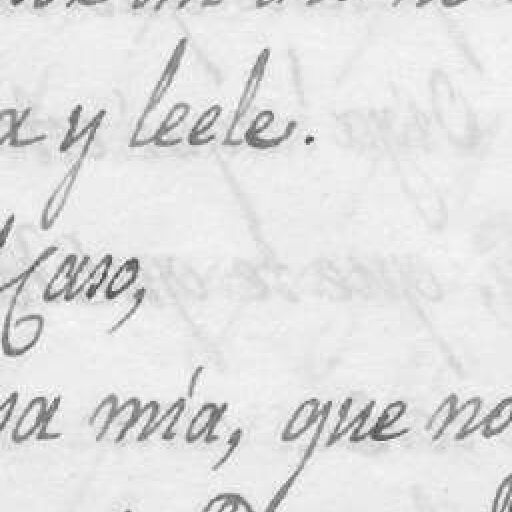 a y leele.
Caso,
mía, que no